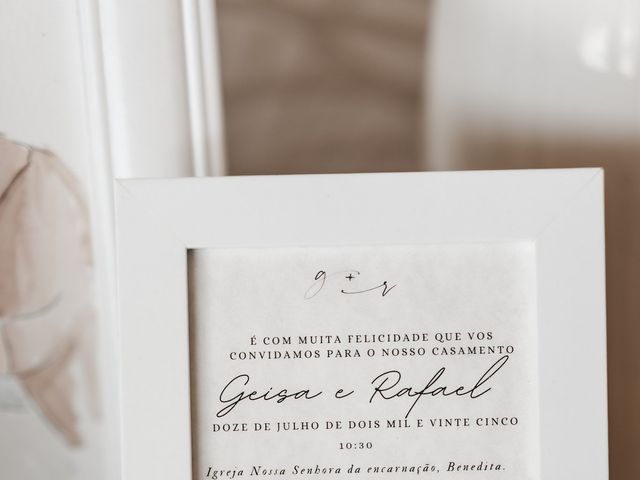 g + r
É COM MUITA FELICIDADE QUE VOS
CONVIDAMOS PARA O NOSSO CASAMENTO
Geisa e Rafael
DOZE DE JULHO DE DOIS MIL E VINTE CINCO
10:30
Igreja Nossa Senhora da encarnação, Benedita.